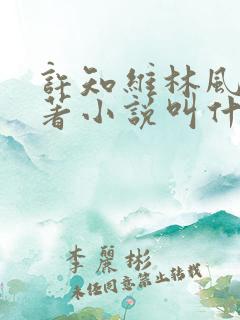 許知維林風
著小說叫什
李麗彬
未经同意禁止转载